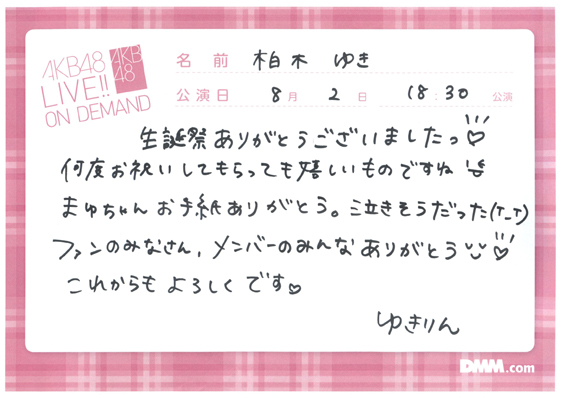 AKB48
LIVE!!
ON DEMAND
AKB
48
名前 柏木 ゆき
公演日 8月 2日 18:30 公演
生誕祭ありがとうございましたっ♡
何度お祝いしてもらっても嬉しいものですね
まゆちゃんお手紙ありがとう。泣きそうだった(T_T)
ファンのみなさん、メンバーのみんなありがとう♡
これからもよろしくです♡
ゆきりん
DMM.com